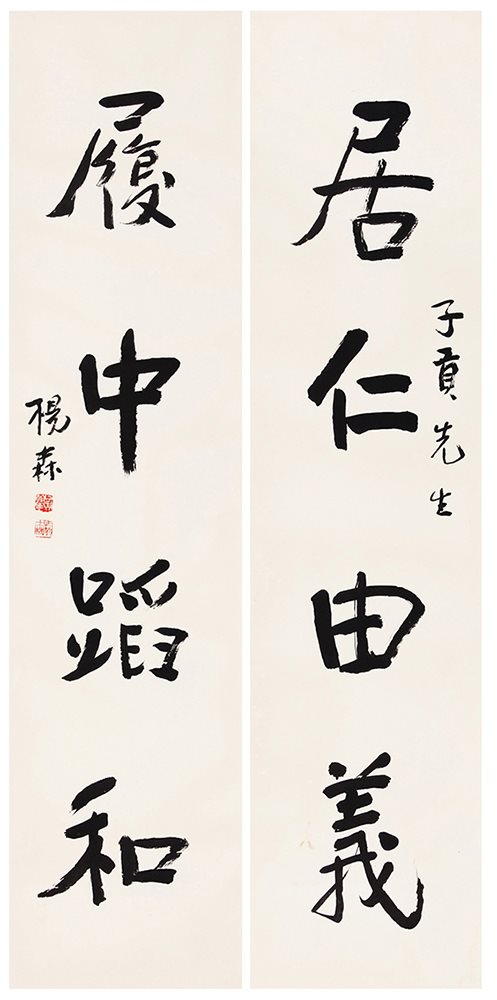 子貢先生
居仁由義
履中蹈和
楊森